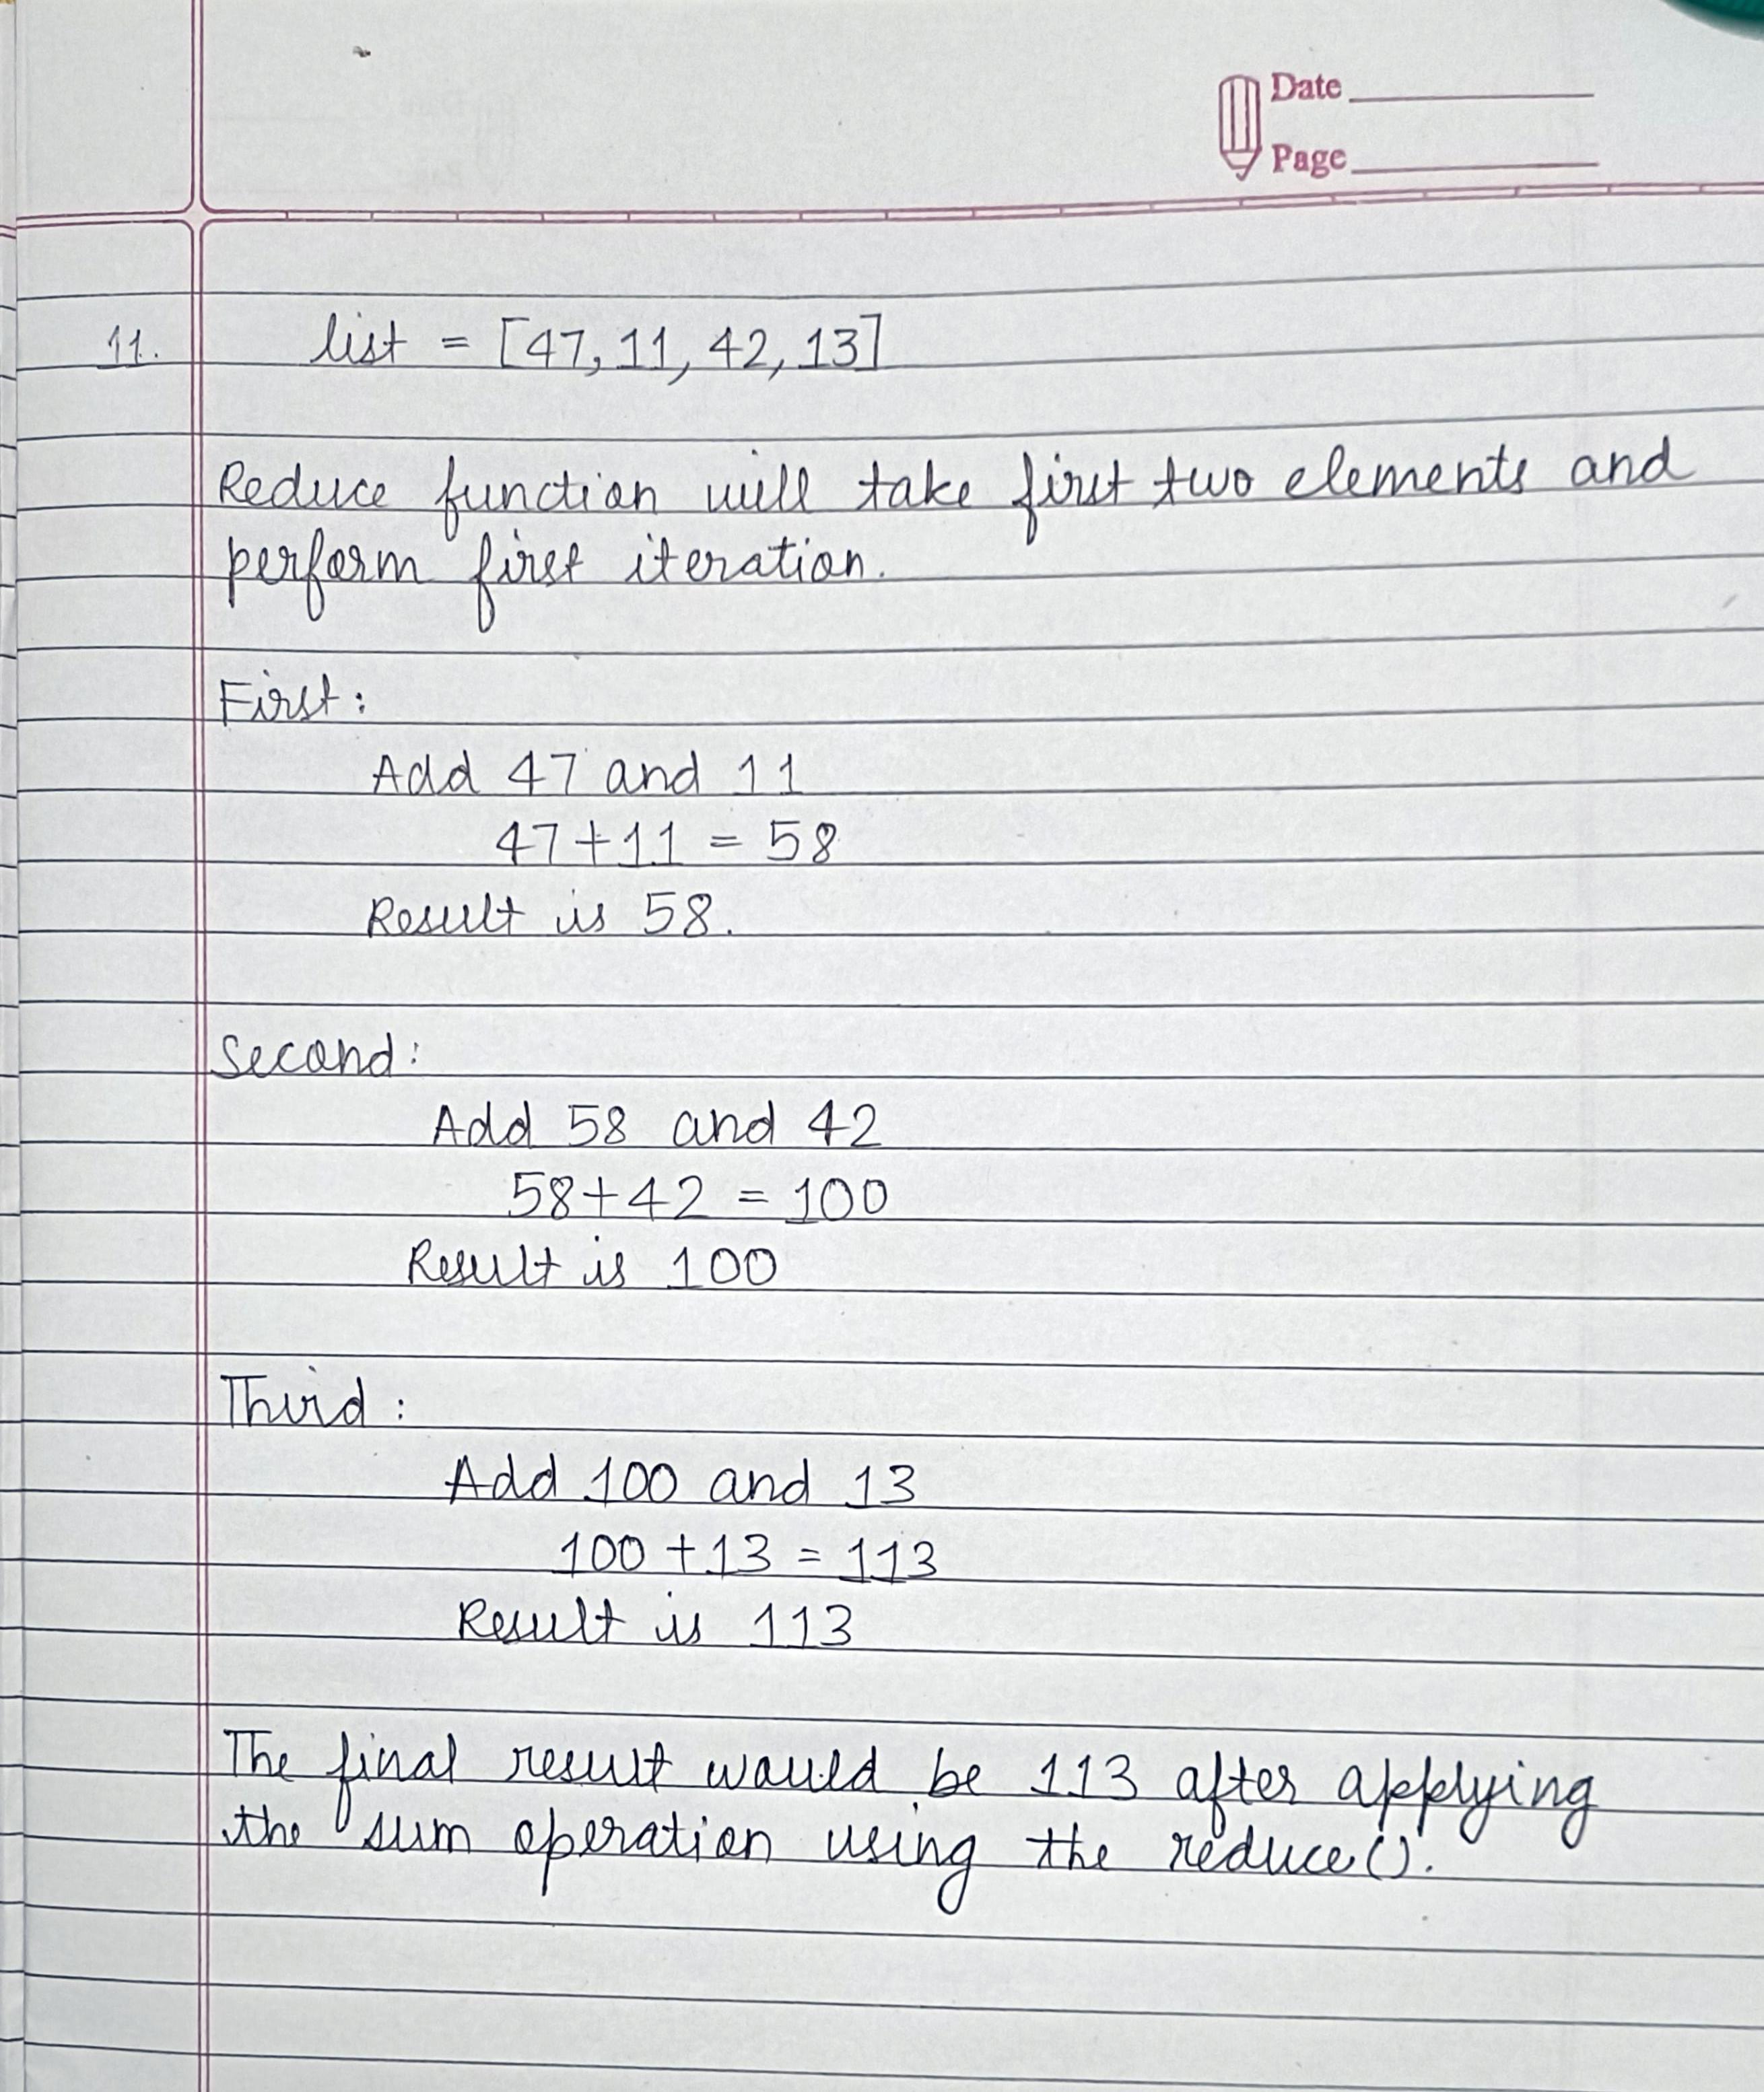 Date
Page
11. list = [47, 11, 42, 13]
Reduce function will take first two elements and
perform first iteration.
First:
Add 47 and 11
47+11 = 58
Result is 58.
Second:
Add 58 and 42
58+42 = 100
Result is 100
Third:
Add 100 and 13
100 + 13 = 113
Result is 113
The final result would be 113 after applying
the sum operation using the reduce().